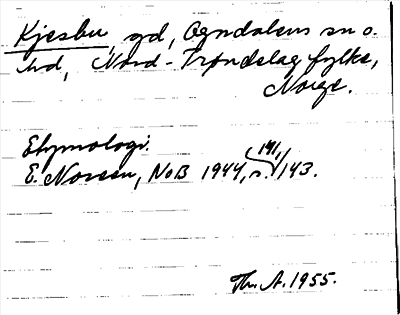 Kjesbu, gd, Ogndalens sn o.
hd, Nord-Trøndelag fylke,
Norge.
Etymologi.
E. Noreen, NoB 1944, s. 141, 143.
Th. A. 1955.